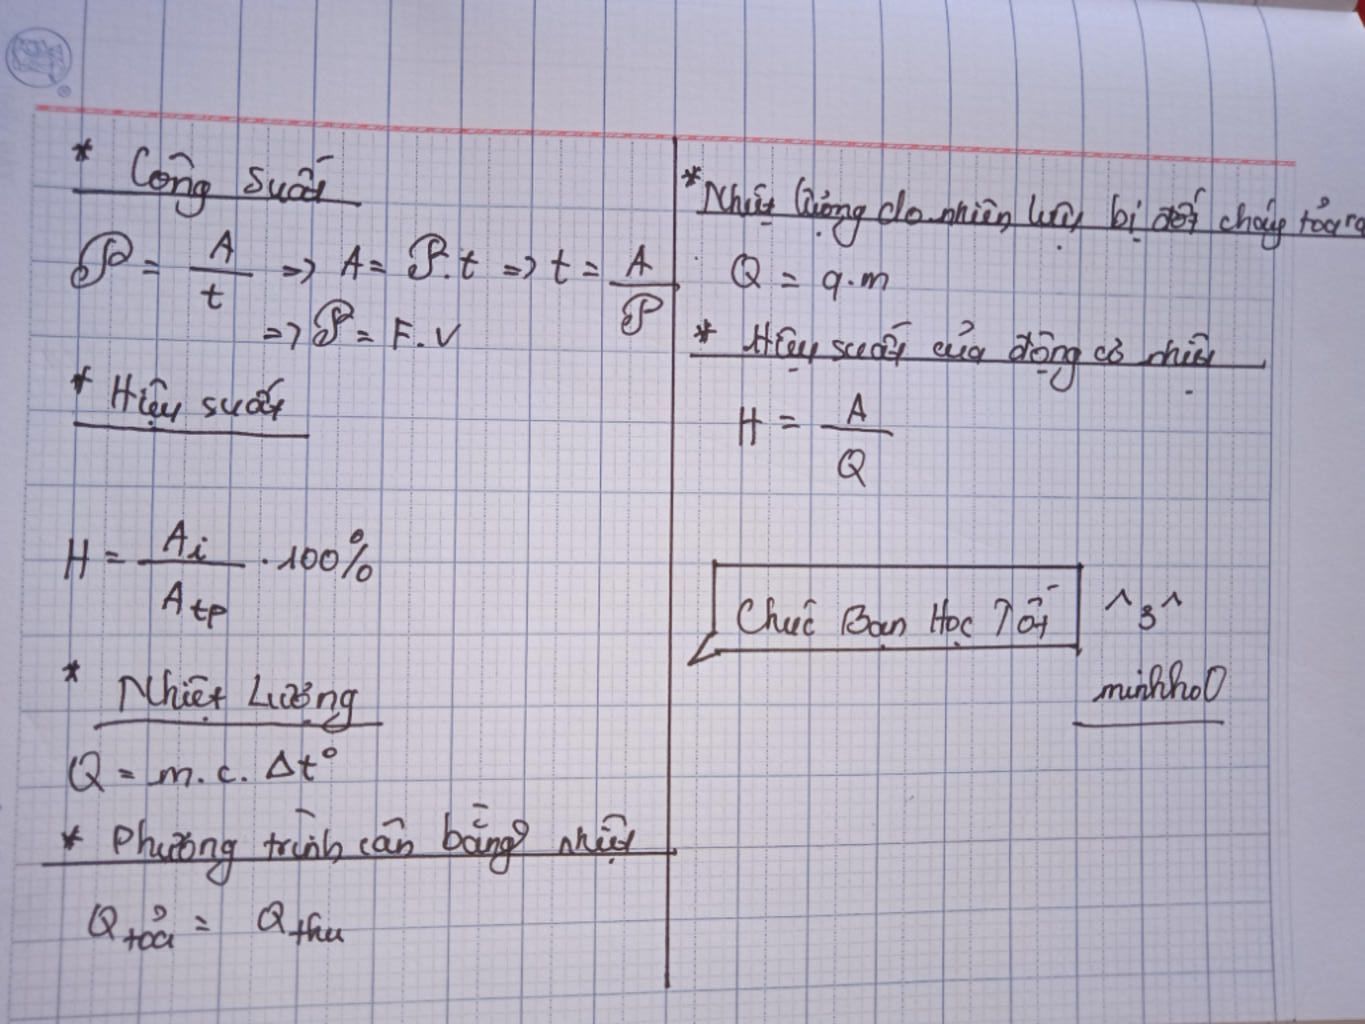 * Công suất
𝒫 = A/t => A = 𝒫.t => t = A/𝒫
=> 𝒫 = F.V
* Hiệu suất
H = Ai/Atp . 100%
* Nhiệt Lượng
Q = m.c.Δt°
* Phương trình cân bằng nhiệt
Qtỏa = Qthu
* Nhiệt lượng do nhiên liệu bị đốt cháy tỏa ra
Q = q.m
* Hiệu suất của động cơ nhiệt
H = A/Q
Chúc Bạn Học Tốt ^3^
minhho0